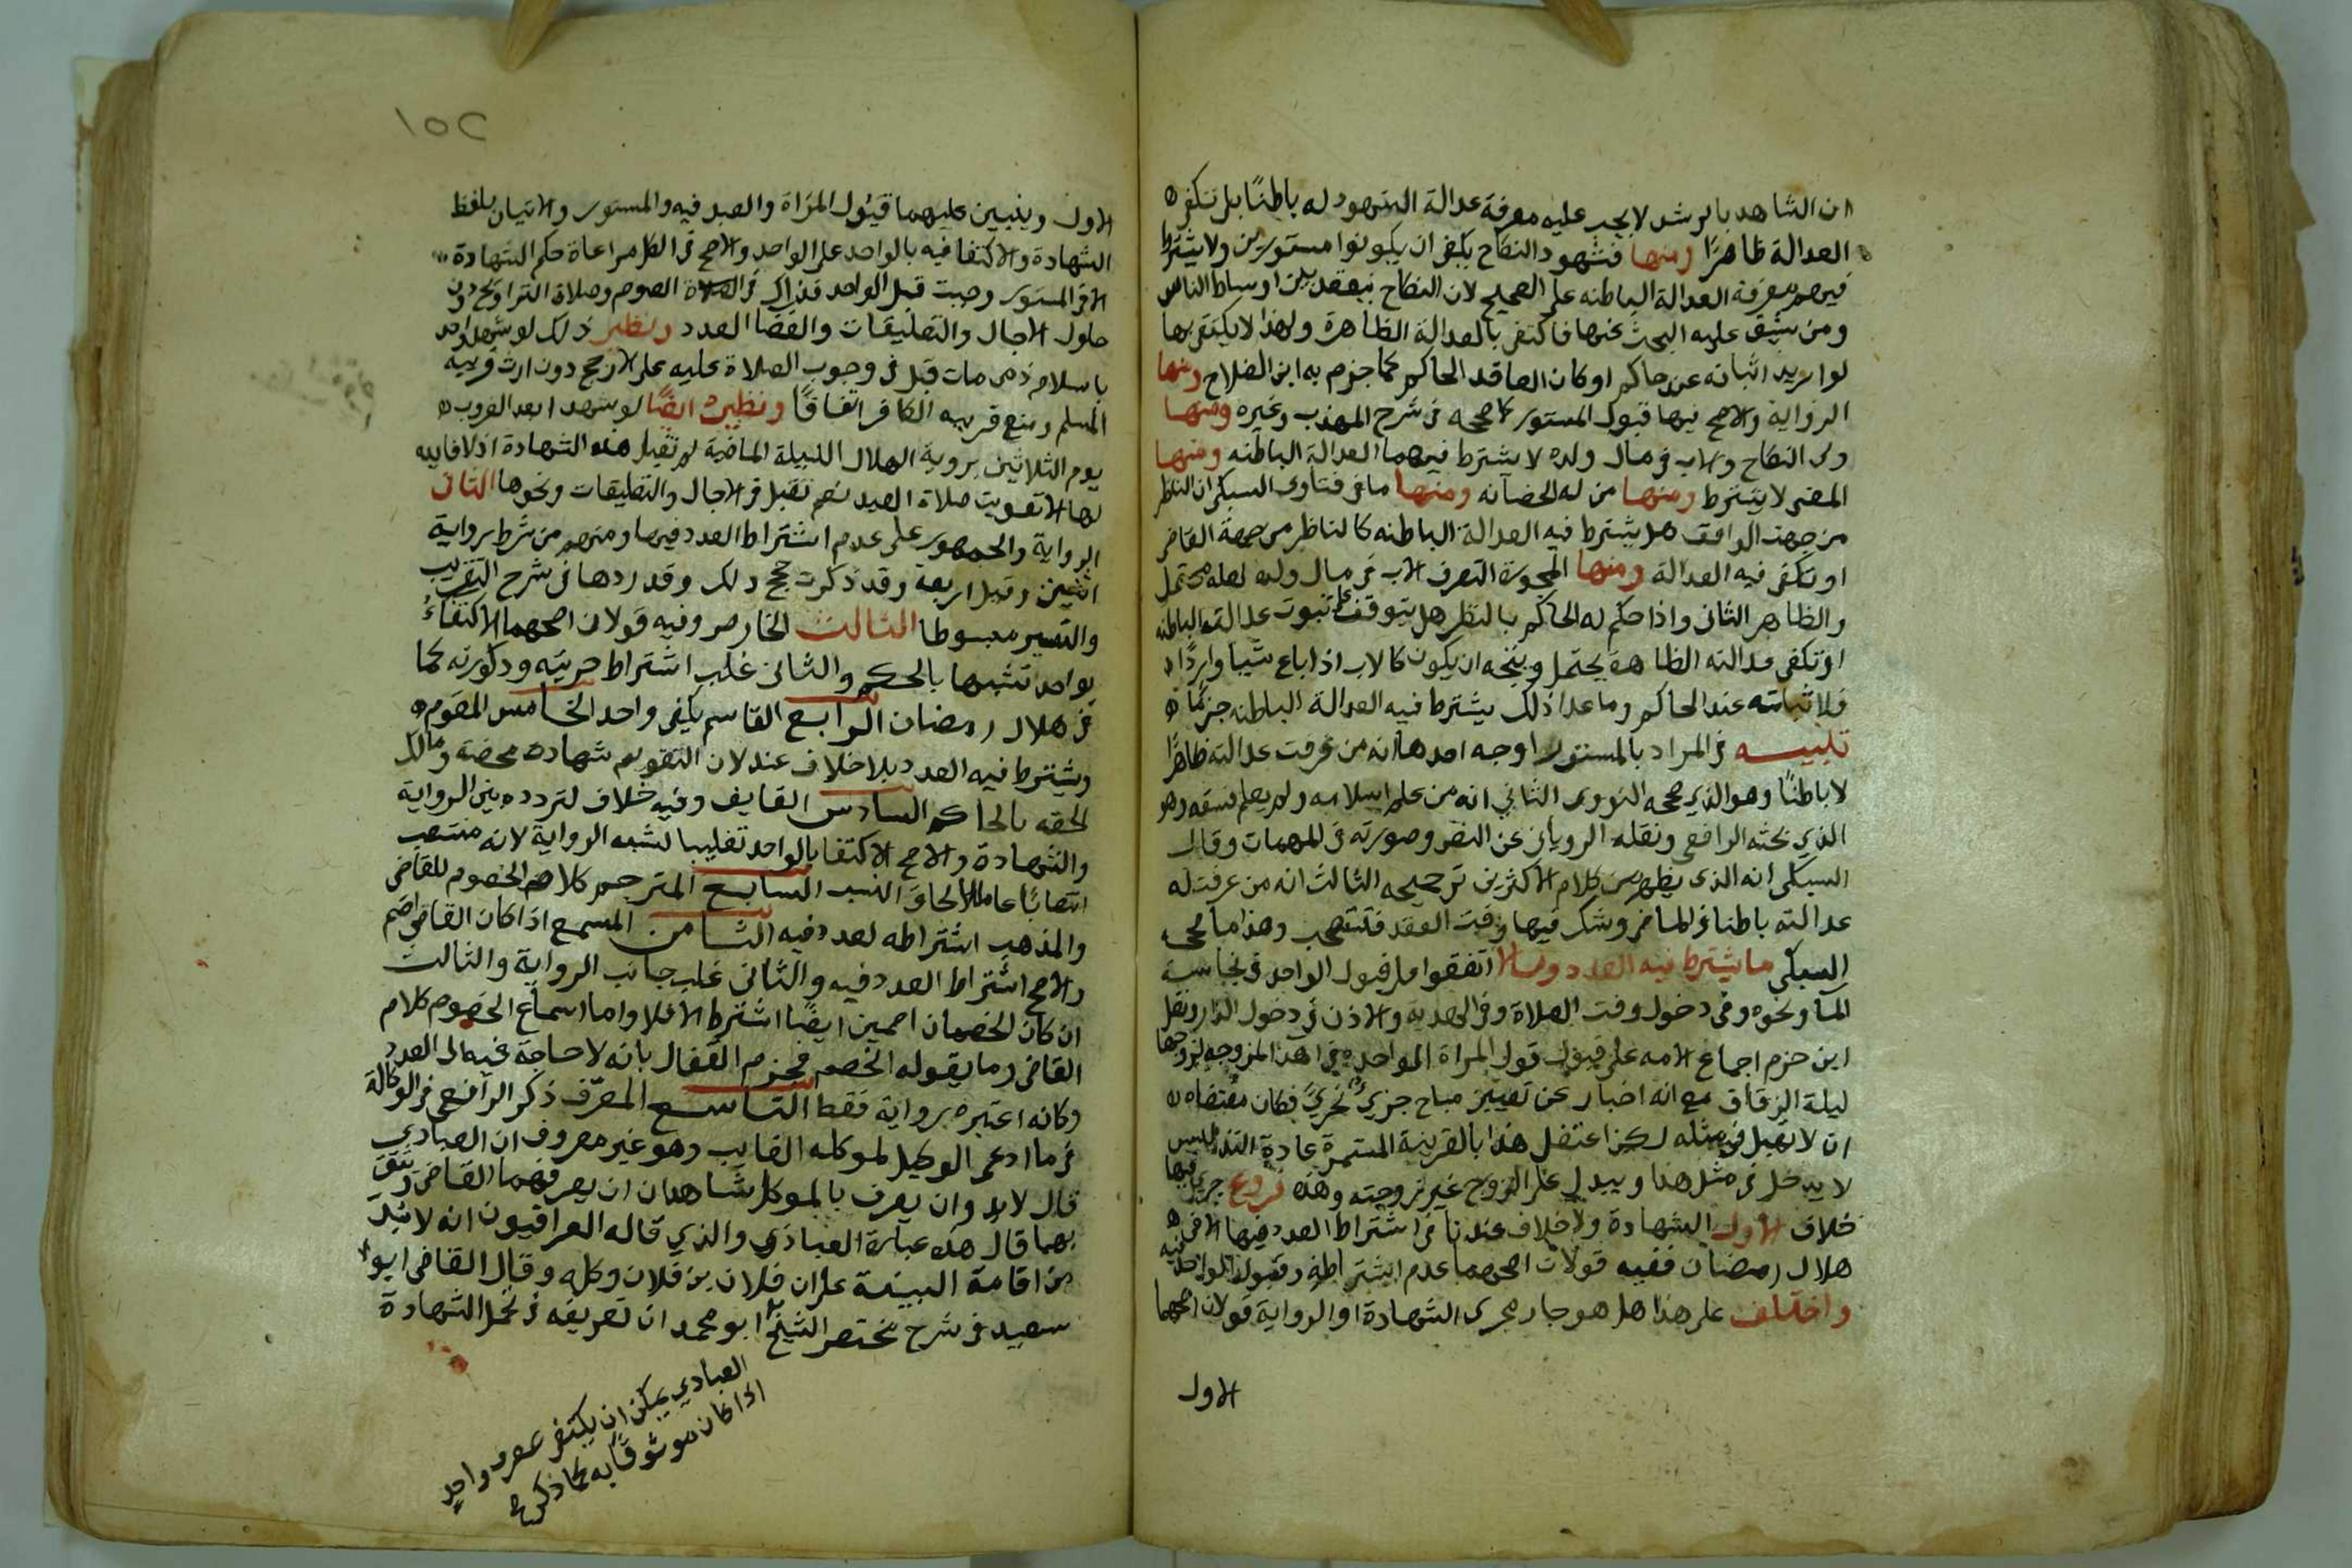 ان الشاهد بالرشد لا يجب عليه معرفة عدالة المشهود له باطنًا بل تكفى
العدالة ظاهرًا ومنها فشهود النكاح يكفى ان يكونوا مستورين ولا يشترط
فيهم معرفة العدالة الباطنه على الصحيح لان النكاح ينعقد بين اوساط الناس
ومن يشق عليه البحث عنها فاكتفى بالعدالة الظاهرة ولهذا لا يكتفى بها
لو اريد اثباته عند حاكم او كان العاقد الحاكم كما جزم به ابن الصلاح ومنها
الرواية والاصح فيها قبول المستور كما صححه فى شرح المهذب وغيره ومنها
ولى النكاح والاب فى مال ولده لا يشترط فيهما العدالة الباطنه ومنها
المفتى لا يشترط ومنها من له الحضانه ومنها ما فى فتاوى السبكى ان الناظر
من جهة الواقف هل يشترط فيه العدالة الباطنه كالناظر من جهة القاضى
او تكفى فيه العدالة ومنها المجوزة لتصرف الاب فى مال ولده لعله محتمل
والظاهر الثانى واذا حكم له الحاكم بالنظر هل يتوقف على ثبوت عدالته الباطنه
او تكفى عدالته الظاهرة يحتمل ويتجه ان يكون كالاب اذا باع شيا واراد
فلا ثباته عند الحاكم وما عدا ذلك يشترط فيه العدالة الباطنه جزمًا
تنبيه فى المراد بالمستور اوجه احدها انه من عرفت عدالته ظاهرًا
لا باطنًا وهو الذي صححه النووى الثاني انه من علم اسلامه ولم يعلم فسقه وهو
الذي بحثه الرافعى ونقله الرويانى عن النص وصوبه فى المهمات وقال
السبكى انه الذى يظهر من كلام الاكثرين ترجيحه الثالث انه من عرفت له
عدالته باطنا فى الماضى وشك فيها وقت العقد فتستصحب وهذا ما صححه
السبكى ما يشترط فيه العدد وما لا اتفقوا على قبول الواحد فى نجاسة
الماء ونحوه وفى دخول وقت الصلاة وفى الهدية والاذن فى دخول الدار ونقل
ابن حزم اجماع الامه على قبول قول المراة الواحدة فى اهداء المزوجه لزوجها
ليلة الزفاف مع انه اخبار عن تعيين مباح جزيء لجزيء فكان مقتضاه
ان لا يقبل فى مثله لكن اعتضد هذا بالقرينة المستمرة عادة التدليس
لا يدخل فى مثل هذا ويبدل على الزوج غير زوجته وهذه فروع جرى فيها
خلاف الاول الشهادة ولا خلاف عندنا فى اشتراط العدد فيها الا فى
هلال رمضان ففيه قولان اصحهما عدم اشتراطه وقبول الواحد فيه
واختلف على هذا هل هو جار مجرى الشهادة او الرواية قولان اصحهما
الاول
١٥٢
الاول وينبنى عليهما قبول المراة والعبد فيه والمستور والاتيان بلفظ
الشهادة والاكتفا فيه بالواحد على الواحد والاصح فى الكل مراعاة حكم الشهادة
الا فى المستور وحيث قبل الواحد فذاك فى الصلاة الصوم وصلاة التراويح دون
حلول الاجال والتعليقات وانقضا العدد ونظير ذلك لو شهد واحد
باسلام ذمى مات قبل فى وجوب الصلاة عليه على الارجح دون ارث قريبه
المسلم ومنع قريبه الكافر اتفاقًا ونظيره ايضًا لو شهد بعد الغروب
يوم الثلاثين بروية الهلال الليلة الماضية لم تقبل هذه الشهادة اذ لا فايدة
لها الا تفويت صلاة العيد نعم تقبل فى الاجال والتعليقات ونحوها الثانى
الرواية والجمهور على عدم اشتراط العدد فيها ومنهم من شرط رواية
اثنين وقيل اربعة وقد ذكرت حجج ذلك وقد ردها فى شرح التقريب
والتيسير مبسوطا الثالث الخارص وفيه قولان اصحهما الاكتفاء
بواحد تشبيها بالحكم والثانى غلب اشتراط حريته وذكورته كما
فى هلال رمضان الرابع القاسم يكفى واحد الخامس المقوم
ويشترط فيه العدد بلا خلاف عند لان التقويم شهادة محضة ومالك
الحقه بالحاكم السادس القايف وفيه خلاف لتردده بين الرواية
والشهادة والاصح الاكتفا بالواحد تغليبا لشبه الرواية لانه منتصب
انتصابًا عاما لالحاق النسب السابع المترجم كلام الخصوم للقاضى
والمذهب اشتراطه لعدد فيه الثامن المسمع اذا كان القاضى اصم
والاصح اشتراط العدد فيه والثانى غلب جانب الرواية والثالث
ان كان الخصمان اصمين ايضًا اشترط الا فلا واما اسماع الخصوم كلام
القاضى وما يقوله الخصم فجزم القفال بانه لا حاجة فيه الى العدد
وكانه اعتبره رواية فقط التاسع المعرّف ذكر الرافعى فى الوكالة
فى ما ادعى الوكيل لموكله الغايب وهو غير معروف ان العبادي
قال لا بد وان يعرف بالموكل شاهدان ان يعرفهما القاضى وتثق
بهما قال هذه عبارة العبادي والذي قاله العراقيون انه لا بد
من اقامة البينة على ان فلان بن فلان وكله وقال القاضى ابو
سعيد فى شرح مختصر الشيخ ابو محمد ان تعريفه فى تحمل الشهادة
العبادي يمكن ان يكتفى بمعرف واحد
اذا كان موثوقًا به كما ذكر